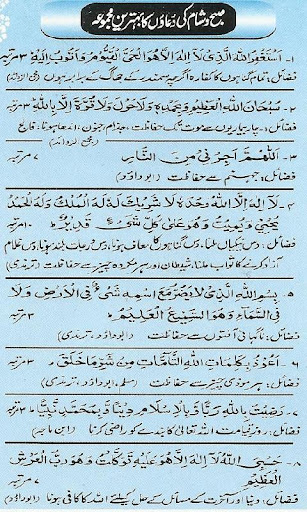 صبح وشام کی دعاؤں کا بہترین مجموعہ
۱- اَسْتَغْفِرُ اللهَ الَّذِیْ لَآ اِلٰهَ اِلَّا هُوَ الْحَیُّ الْقَیُّوْمُ وَاَتُوْبُ اِلَیْهِ ۳ مرتبہ
فضائل: تمام گناہوں کا کفارہ اگرچہ سمندر کے جھاگ کے برابر ہوں
۲- سُبْحَانَ اللهِ الْعَظِیْمِ وَبِحَمْدِهٖ وَلَا حَوْلَ وَلَا قُوَّةَ اِلَّا بِاللهِ ۳ مرتبہ
فضائل: چار بیماریوں سے موت تک حفاظت، جذام، جنون، اندھا ہونا، فالج
۳- اَللّٰهُمَّ اَجِرْنِیْ مِنَ النَّارِ ۷ مرتبہ
فضائل: جہنم سے حفاظت (ابوداؤد)
۴- لَآ اِلٰهَ اِلَّا اللهُ وَحْدَهٗ لَا شَرِیْكَ لَهٗ لَهُ الْمُلْكُ وَلَهُ الْحَمْدُ
یُحْیِیْ وَیُمِیْتُ وَهُوَ عَلٰی كُلِّ شَیْءٍ قَدِیْرٌ ۱۰ مرتبہ
فضائل: دس نیکیاں ملنا، دس گناہوں کی معافی ہونا، دس درجات بلند ہونا، دس غلام
آزاد کرنے کا ثواب ملنا، شیطان اور ہر مکروہ چیز سے حفاظت (ترمذی)
۵- بِسْمِ اللهِ الَّذِیْ لَا یَضُرُّ مَعَ اسْمِهٖ شَیْءٌ فِی الْاَرْضِ وَلَا
فِی السَّمَآءِ وَهُوَ السَّمِیْعُ الْعَلِیْمُ ۳ مرتبہ
فضائل: ناگہانی آفتوں سے حفاظت (ابوداؤد، ترمذی)
۶- اَعُوْذُ بِكَلِمَاتِ اللهِ التَّآمَّاتِ مِنْ شَرِّ مَا خَلَقَ ۳ مرتبہ
فضائل: ہر موذی چیز سے حفاظت (مسلم، ابوداؤد، ترمذی)
۷- رَضِیْتُ بِاللهِ رَبًّا وَّبِالْاِسْلَامِ دِیْنًا وَّبِمُحَمَّدٍ نَّبِیًّا ۳ مرتبہ
فضائل: روز قیامت اللہ تعالیٰ کا بندے کو راضی کرنا (ابن ماجہ)
۸- حَسْبِیَ اللهُ لَآ اِلٰهَ اِلَّا هُوَ عَلَیْهِ تَوَكَّلْتُ وَهُوَ رَبُّ الْعَرْشِ
الْعَظِیْمِ ۷ مرتبہ
فضائل: دنیا اور آخرت کے مسائل کے حل کیلئے اللہ کا کافی ہونا (ابوداؤد)